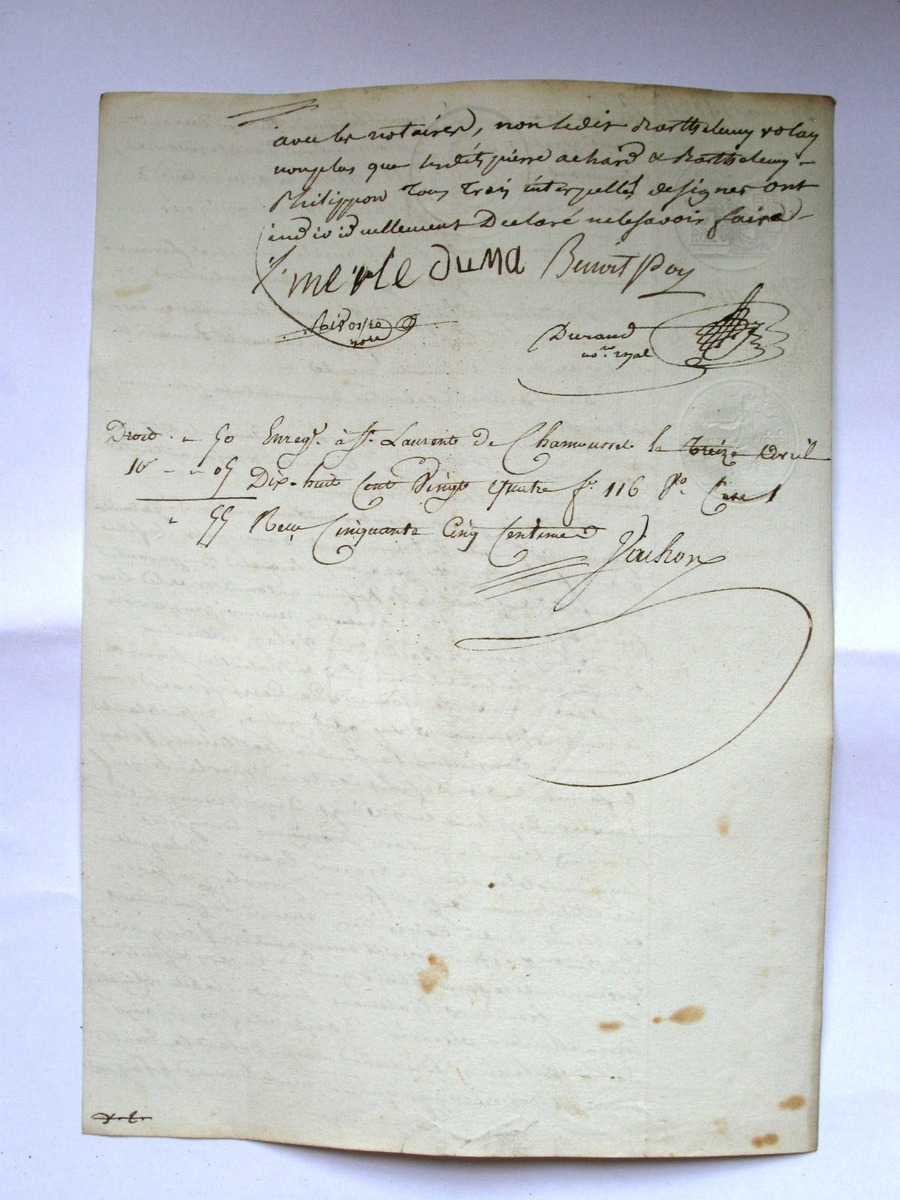 avec les notaires, non ledit Barthelemy volay
non plus que lesdits pierre achard & Barthelemy
Philippon Tous Trois interpellés de signer ont
individuellement Declaré ne le savoir faire
merle Duma Benoit Poy
nore
Durand
nore. royal
Droit. „ 50 Enregt. à St. Laurent de Chamousset le treize avril
10e „ „ 05 Dix-huit Cent Vingt quatre fo. 116 Vo. Case 1
„ 55 Reçu Cinquante Cinq Centimes